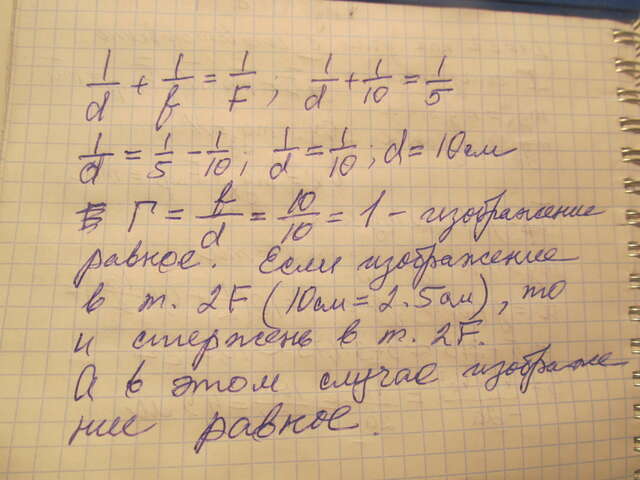 1/d + 1/f = 1/F ; 1/d + 1/10 = 1/5
1/d = 1/5 - 1/10 ; 1/d = 1/10 ; d = 10см
Г = f/d = 10/10 = 1 - изображение
равное. Если изображение
в т. 2F (10см = 2·5см), то
и стержень в т. 2F.
А в этом случае изображе
ние равное.